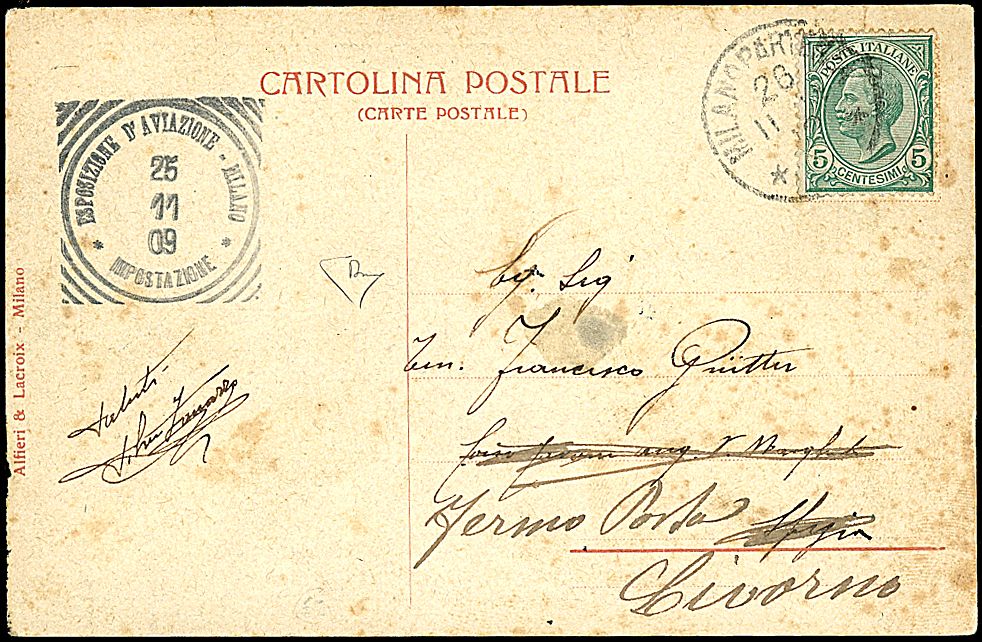 CARTOLINA POSTALE
(CARTE POSTALE)
ESPOSIZIONE D'AVIAZIONE - MILANO
25
11
09
* IMPOSTAZIONE *
MILANO
26
11
*
POSTE ITALIANE
5 CENTESIMI 5
Alfieri & Lacroix - Milano
Saluti
Sig
Ten. Francesco Guitter
Fermo Posta
Livorno